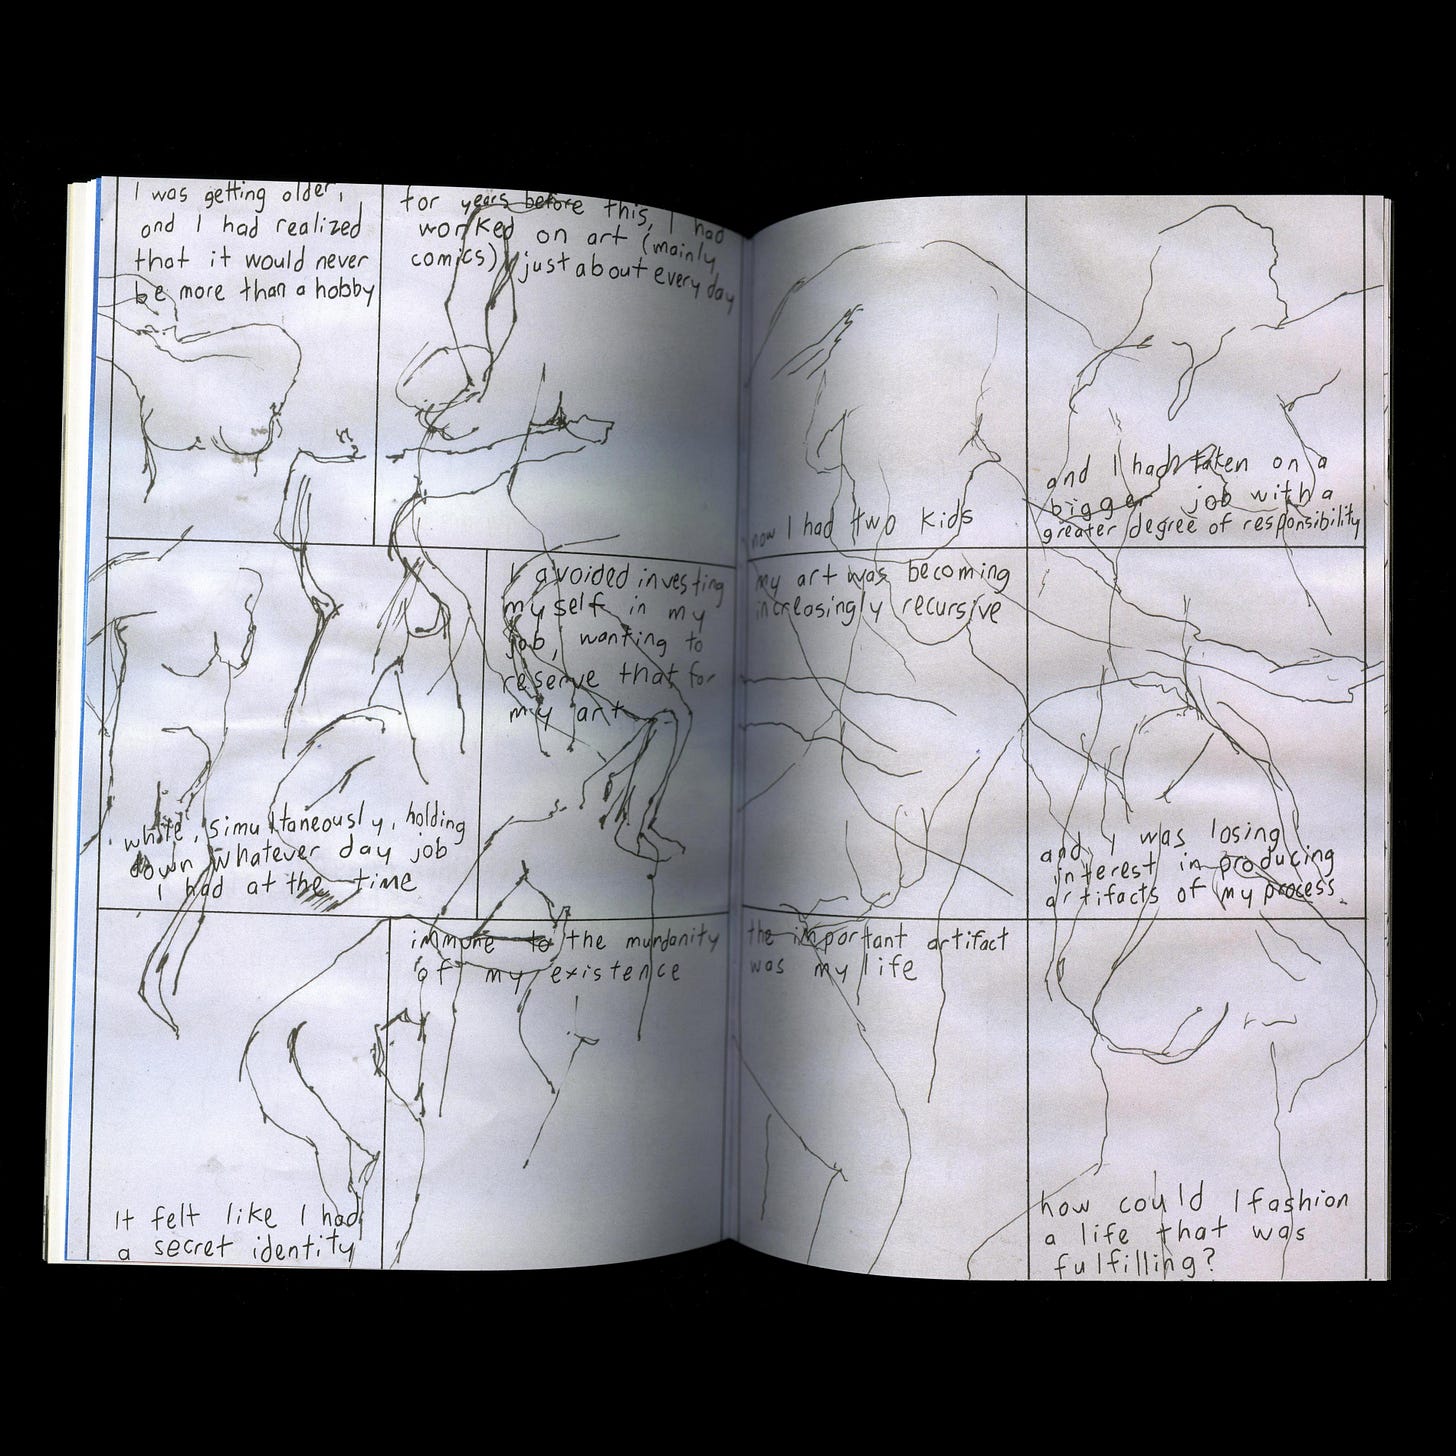 I was getting older,
and I had realized
that it would never
be more than a hobby
for years before this, I had
worked on art (mainly
comics) just about every day
while, simultaneously, holding
down whatever day job
I had at the time
I avoided investing
myself in my
job, wanting to
reserve that for
my art
It felt like I had
a secret identity
immune to the mundanity
of my existence
now I had two kids
and I had taken on a
bigger job with a
greater degree of responsibility
my art was becoming
increasingly recursive
and I was losing
interest in producing
artifacts of my process.
the important artifact
was my life
how could I fashion
a life that was
fulfilling?